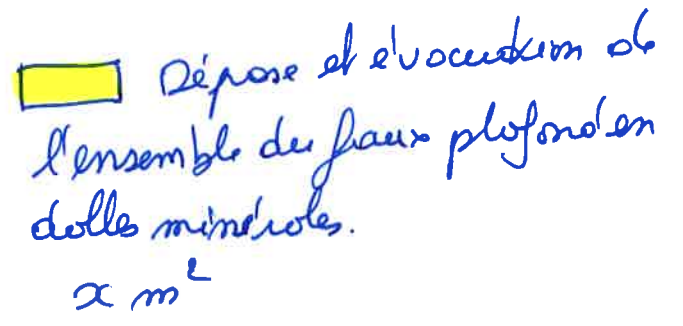 Dépose et évacuation de
l'ensemble du faux plafond en
dalles minérales.
x m²